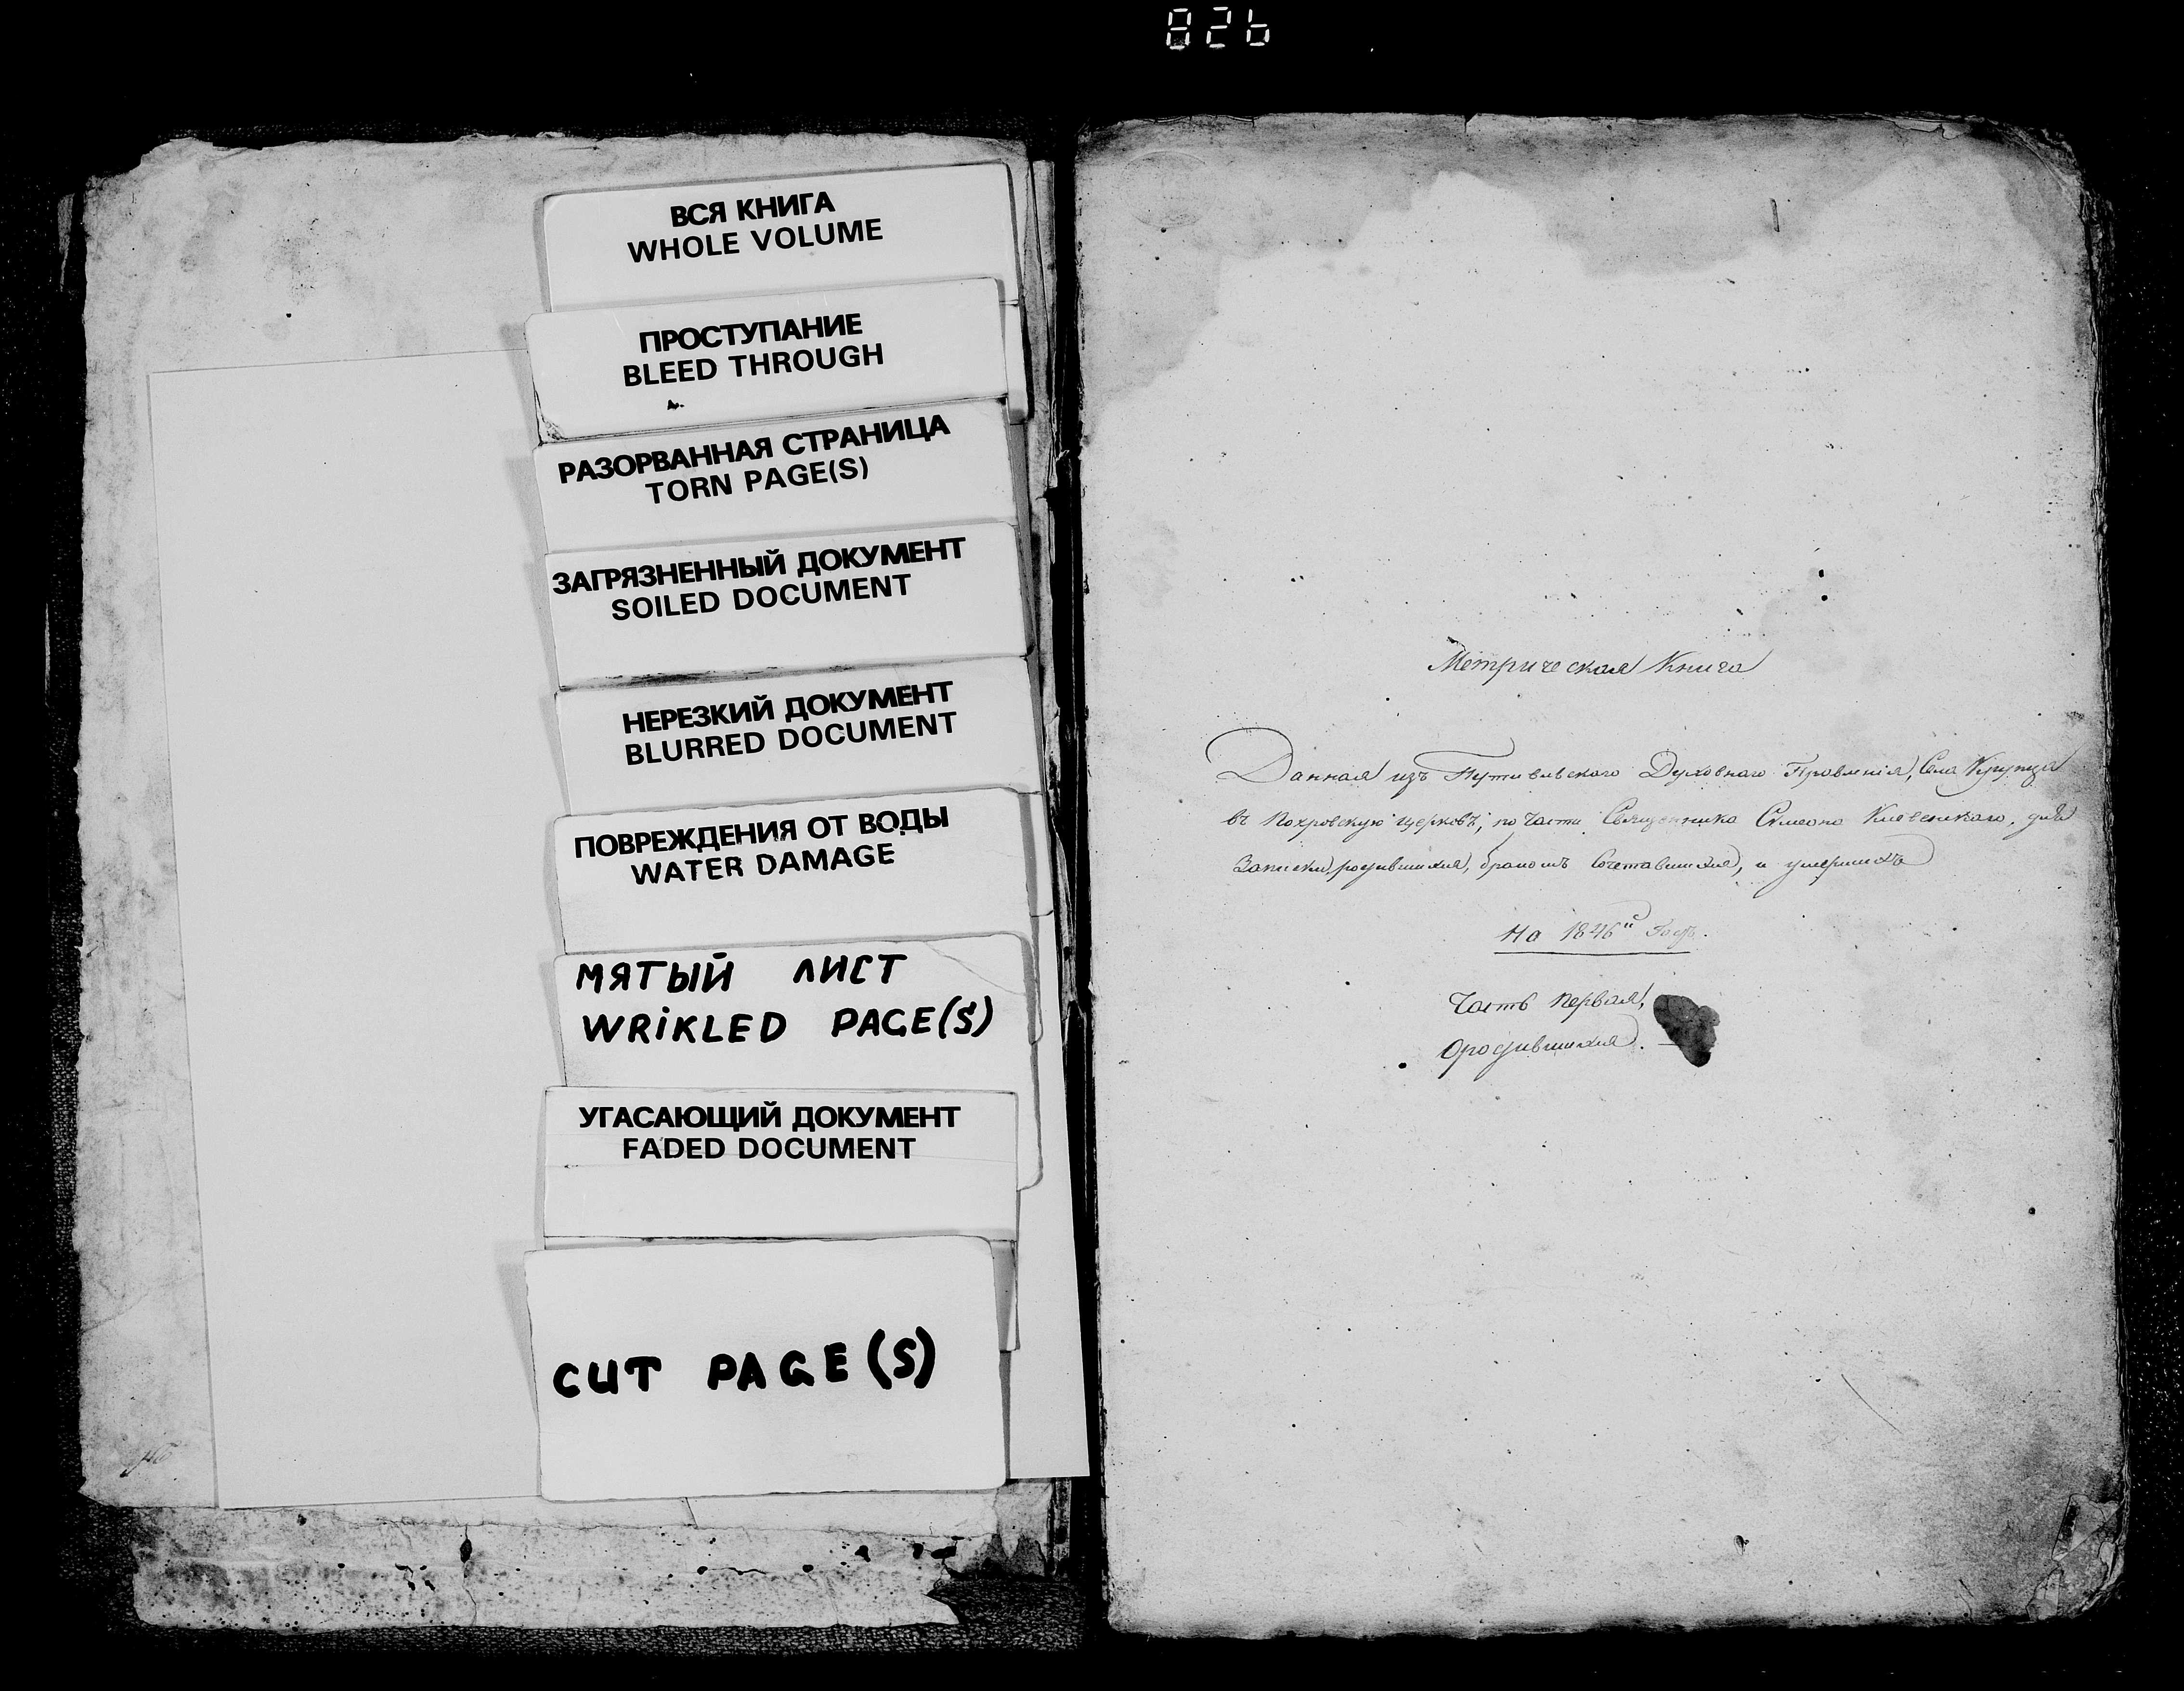 826
ВСЯ КНИГА
WHOLE VOLUME
ПРОСТУПАНИЕ
BLEED THROUGH
РАЗОРВАННАЯ СТРАНИЦА
TORN PAGE(S)
ЗАГРЯЗНЕННЫЙ ДОКУМЕНТ
SOILED DOCUMENT
НЕРЕЗКИЙ ДОКУМЕНТ
BLURRED DOCUMENT
ПОВРЕЖДЕНИЯ ОТ ВОДЫ
WATER DAMAGE
МЯТЫЙ ЛИСТ
WRIKLED PAGE(S)
УГАСАЮЩИЙ ДОКУМЕНТ
FADED DOCUMENT
CUT PAGE(S)
Метрическая Книга
Данная изъ Путивльского Духовнаго Правленія, Села Крупца
въ Покровскую церковь, по части Священника Симеона для
Записки родившихся, бракомъ Сочетавшихся, и умершихъ
На 1846й Годъ.
Часть Первая,
О родившихся.